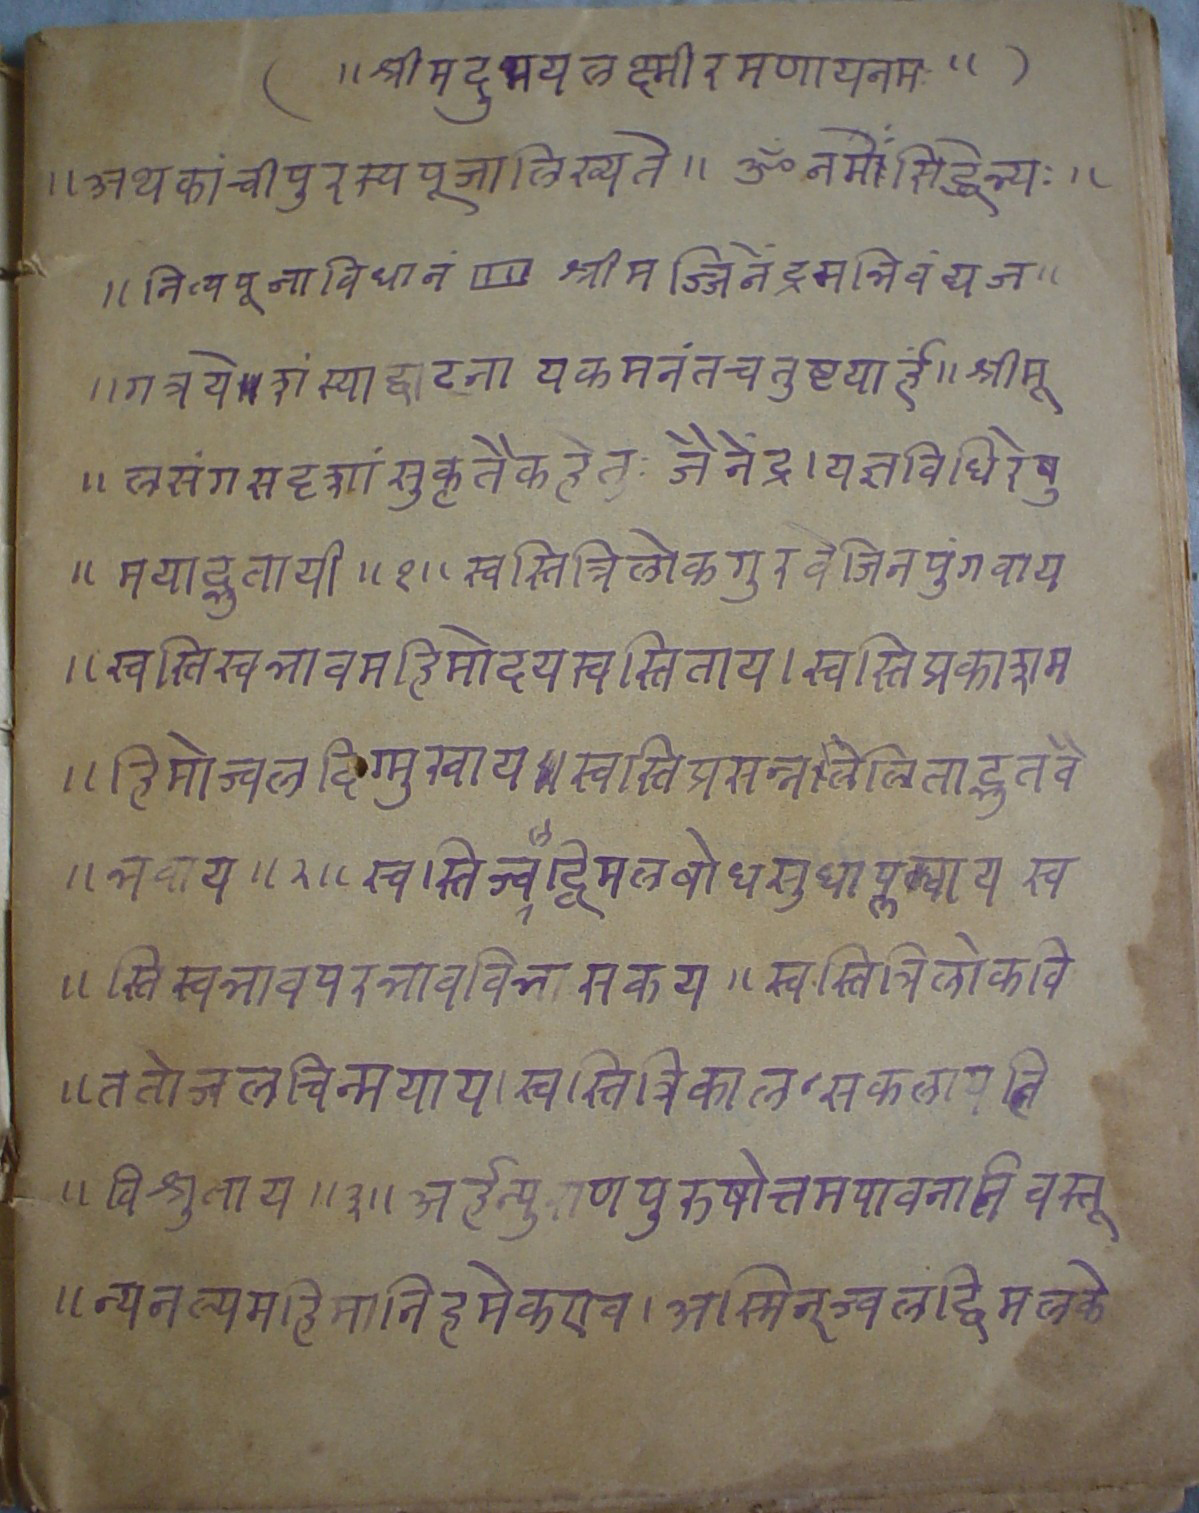 ( ॥ श्रीमदुभयलक्ष्मीरमणायनमः ॥ )
॥ अथकांचीपुरस्यपूजालिख्यते ॥ ॐ नमोंसिद्धेभ्यः ॥
॥ नित्यपूजाविधानं श्रीमज्जिनेंद्रमभिवंद्यज ॥
॥ गत्रयेशंस्याद्वादनायकमनंतचतुष्टयार्हं ॥ श्रीमू
॥ लसंगसदृशांसुकृतैकहेतुः जैनेंद्र । यज्ञविधिरेषु
॥ मयाद्भुतायी ॥१॥ स्वस्तित्रिलोकगुरवेजिनपुंगवाय
॥ स्वस्तिस्वभावमहिमोदयस्वस्तिताय । स्वस्तिप्रकाशम
॥ हिमोज्वलदिग्मुखाय ॥ स्वस्तिप्रसन्नलिलिताद्भुतवै
॥ भवाय ॥२॥ स्वस्ति मलबोधसुधाप्लवाय स्व
॥ स्तिस्वभावपरभावविभासकय ॥ स्वस्तित्रिलोकवि
॥ ततोजलचिन्मयाय । स्वस्तित्रिकाल सकलायति
॥ विश्रुताय ॥३॥ अर्हन्पुराणपुरुषोत्तमपावनानिवस्तू
॥ न्यनल्यमहिमानिहमेकएव । अस्मिन्ज्वलद्विमलके